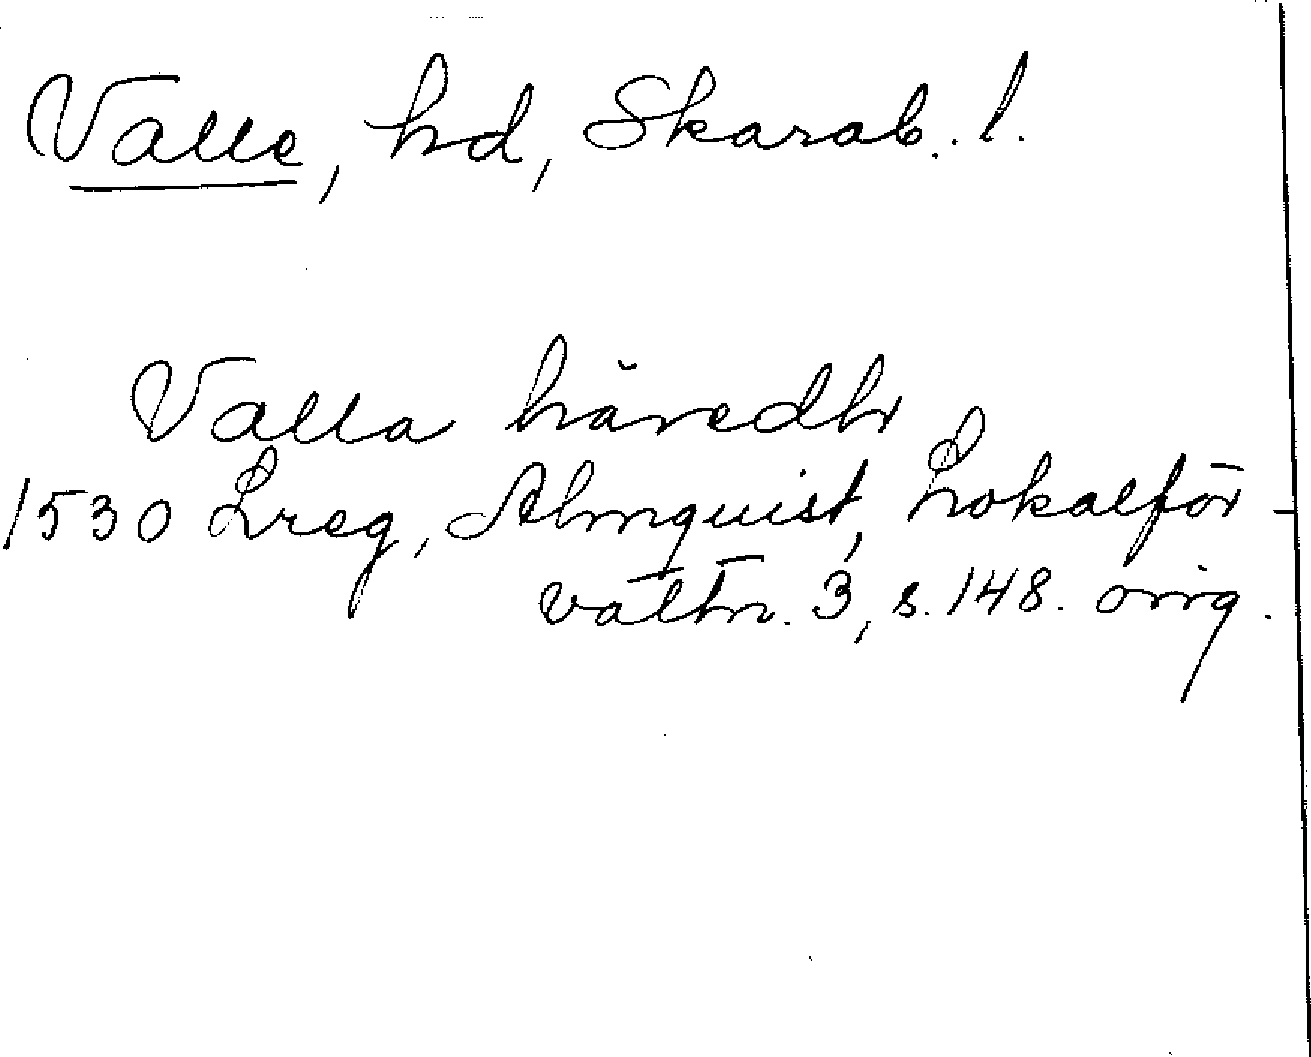 Valle, hd, Skarab. l.
Valla häredhr
1530 Lreg, Almquist, Lokalför-
valtn. 3, s. 148. orig.